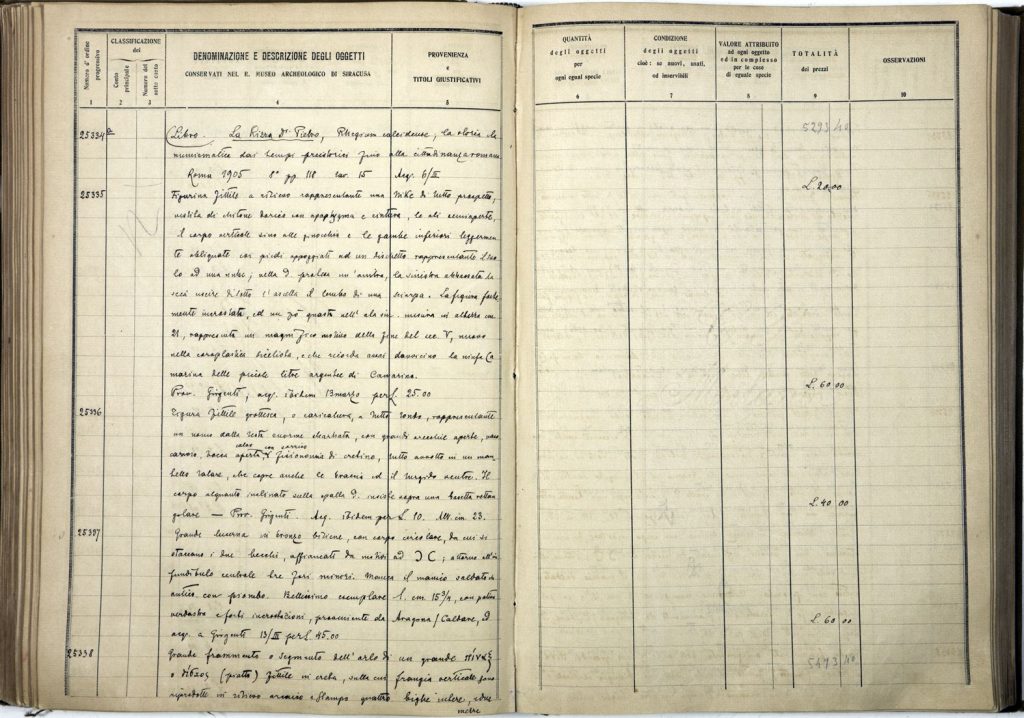 Numero d'ordine progressivo
CLASSIFICAZIONE
del
Conto principale
Numero del sotto conto
DENOMINAZIONE E DESCRIZIONE DEGLI OGGETTI
CONSERVATI NEL R. MUSEO ARCHEOLOGICO DI SIRACUSA
PROVENIENZA
e
TITOLI GIUSTIFICATIVI
1 2 3 4 5
25334 a Libro. La Rizza Dr Pietro, Rhegium calcidense, la storia e la
numismatica dai tempi preistorici fino alla cittadinanza romana
Roma 1905 8° pp. 118 tav. 15 Acq. 6/III
25335 Figurina fittile a rilievo rappresentante una Nike di tutto prospetto,
vestita di chitone dorico con apoptygma e cintura, le ali semiaperte,
il corpo verticale sino alle ginocchia e le gambe inferiori leggermen
te obliquate coi piedi appoggiati ad un dischetto rappresentante il suo
lo ad una nube; nella d. protesa un'
la sinistra abbassata la
scia uscire di sotto l'ascella il lembo di una sciarpa. La figura forte
mente incrostata, ed un pò guasta nell'ala sin. misura in altezza cm
21, rappresenta un magnifico motivo della fine del sec. V, nuovo
nella coroplastica siceliota, e che ricorda assai davvicino la ninfa Ca
marina delle piccole litre argentee di Camarina.
Prov. Girgenti, acq. ibidem 13 marzo per L. 25.00
25336 Figura fittile grottesca, o caricatura, a tutto tondo, rappresentante
un uomo dalla testa enorme sbarbata, con grandi orecchie aperte, naso
carnoso, bocca aperta, con sorriso
fisionomia di cretino, tutto avvolto in un man
tello talare, che copre anche le braccia ed il turgido ventre. Il
corpo alquanto inclinato sulla spalla d. insiste sopra una basetta rettan
golare — Prov. Girgenti. Acq. ibidem per L. 10. Alt. cm. 23.
25337 Grande lucerna in bronzo bilicne, con corpo circolare, da cui si
staccano i due becchi, affiancati da motivi ad Ɔ C; attorno all'in
fundibulo centrale tre fori minori. Manca il manico saldato in
antico con piombo. Bellissimo esemplare l. cm. 15 3/4, con patina
verdastra e forti incrostazioni, proveniente da Aragona / Caldare, ed
acq. a Girgenti 13/III per L. 45.00
25338 Grande frammento o segmento dell'orlo di un grande πίναξ
o (piatto) fittile in creta, sulla cui frangia verticale sono
riprodotte in rilievo arcaico a stampo quattro bighe intere, e due
metre
QUANTITÀ
degli oggetti
per
ogni egual specie
CONDIZIONE
degli oggetti
cioè: se nuovi, usati,
od inservibili
VALORE ATTRIBUITO
ad ogni oggetto
ed in complesso
per le cose
di eguale specie
TOTALITÀ
dei prezzi
OSSERVAZIONI
6 7 8 9 10
5293 40
L. 20.00
L. 60 00
L. 40 00
L. 60 00
5473 40